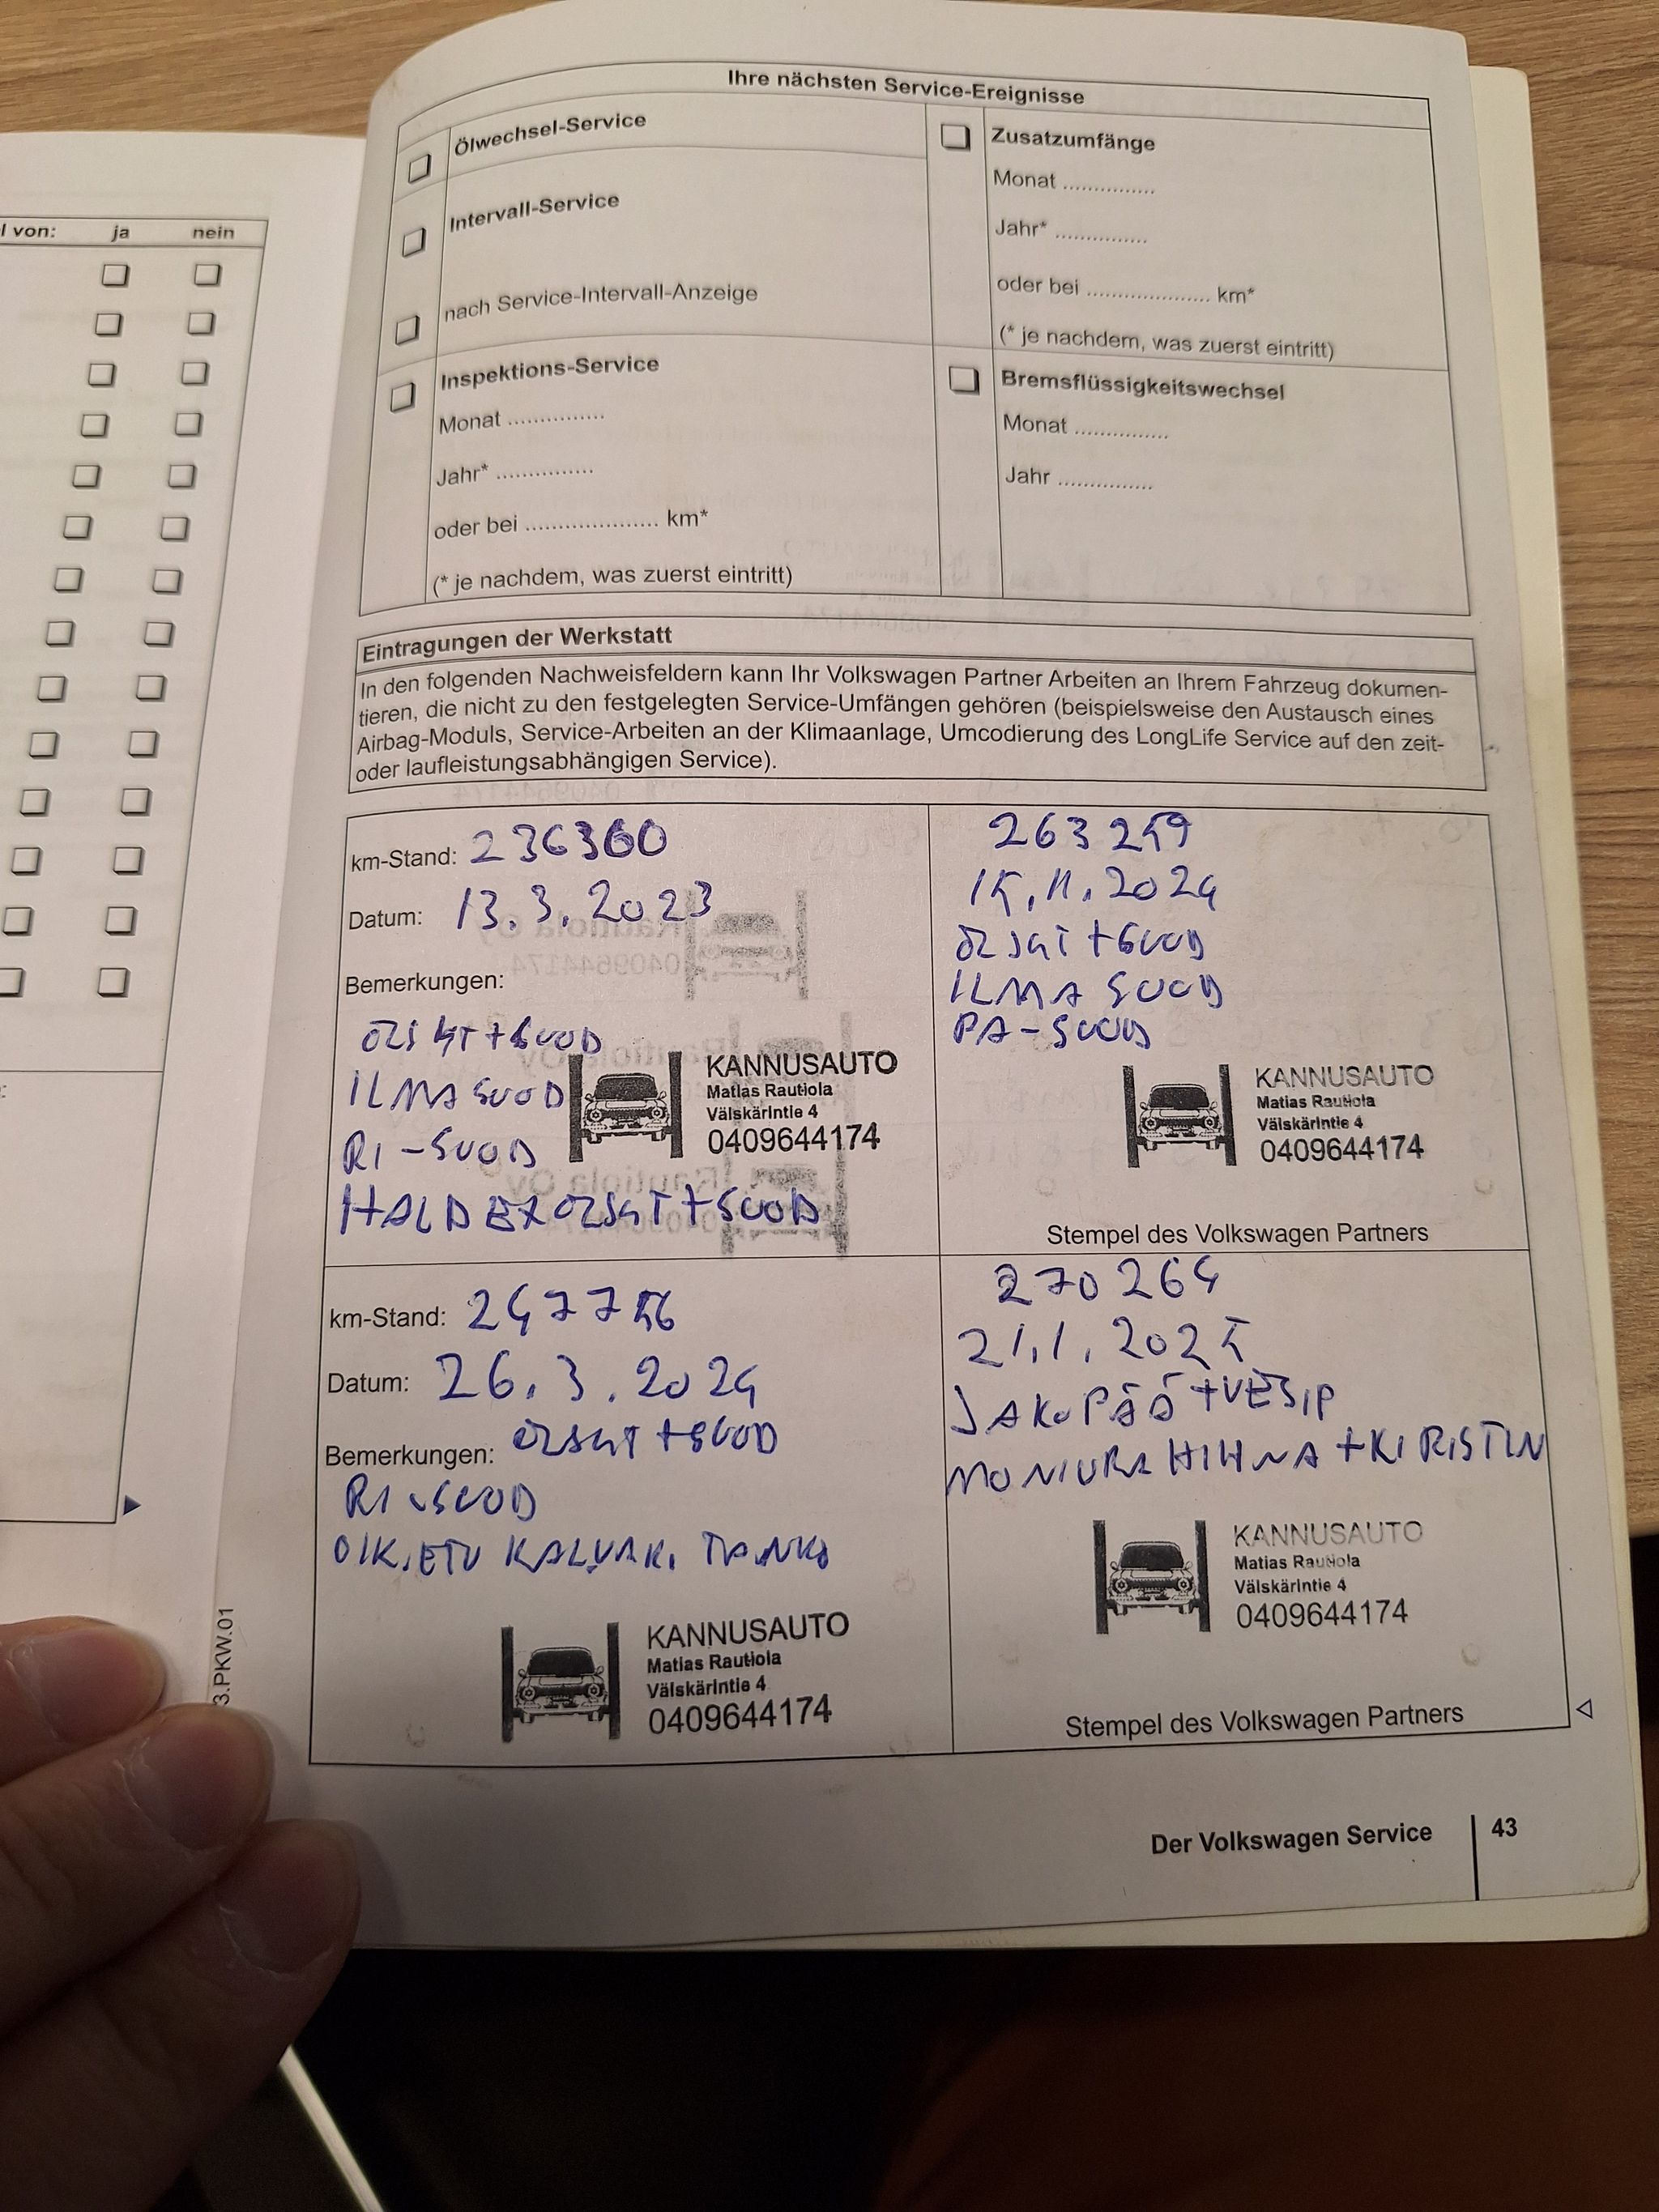 l von: ja nein
3.PKW.01
Ihre nächsten Service-Ereignisse
Ölwechsel-Service
Intervall-Service
nach Service-Intervall-Anzeige
Inspektions-Service
Monat ...............
Jahr* ...............
oder bei .................... km*
(* je nachdem, was zuerst eintritt)
Zusatzumfänge
Monat ...............
Jahr* ...............
oder bei .................... km*
(* je nachdem, was zuerst eintritt)
Bremsflüssigkeitswechsel
Monat ...............
Jahr ...............
Eintragungen der Werkstatt
In den folgenden Nachweisfeldern kann Ihr Volkswagen Partner Arbeiten an Ihrem Fahrzeug dokumen-
tieren, die nicht zu den festgelegten Service-Umfängen gehören (beispielsweise den Austausch eines
Airbag-Moduls, Service-Arbeiten an der Klimaanlage, Umcodierung des LongLife Service auf den zeit-
oder laufleistungsabhängigen Service).
km-Stand: 236360
Datum: 13.3.2023
Bemerkungen:
ÖLJYT+SUOD
ILMASUOD
RI-SUOD
HALDEX ÖLJYT+SUOD
KANNUSAUTO
Matias Rautiola
Välskärintie 4
0409644174
263259
15.11.2024
ÖLJYT+SUOD
ILMA SUOD
PA-SUOD
KANNUSAUTO
Matias Rautiola
Välskärintie 4
0409644174
Stempel des Volkswagen Partners
km-Stand: 247756
Datum: 26.3.2024
Bemerkungen: ÖLJYT+SUOD
RI-SUOD
OIK.ETU KALVAK. TANKO
KANNUSAUTO
Matias Rautiola
Välskärintie 4
0409644174
270264
21.1.2025
JAKOPÄÄ+VESIP
MONIURAHIHNA+KIRISTIN
KANNUSAUTO
Matias Rautiola
Välskärintie 4
0409644174
Stempel des Volkswagen Partners
Der Volkswagen Service 43